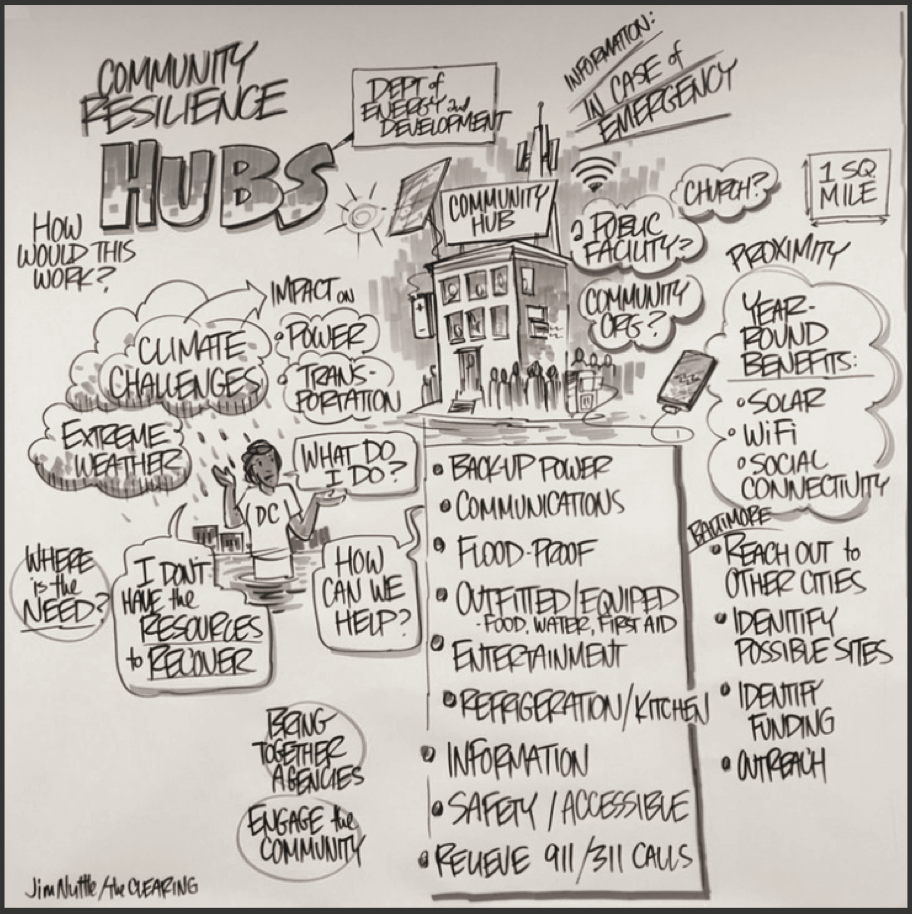 COMMUNITY
RESILIENCE
HUBS
DEPT of
ENERGY and
DEVELOPMENT
INFORMATION:
IN CASE of
EMERGENCY
COMMUNITY
HUB
CHURCH?
PUBLIC
FACILITY?
COMMUNITY
ORG?
1 SQ.
MILE
PROXIMITY
HOW
WOULD THIS
WORK?
CLIMATE
CHALLENGES
IMPACT ON
• POWER
• TRANS-
PORTATION
EXTREME
WEATHER
WHAT DO
I DO?
DC
WHERE
is the
NEED?
I DON'T
HAVE the
RESOURCES
to RECOVER
HOW
CAN WE
HELP?
BRING
TOGETHER
AGENCIES
ENGAGE the
COMMUNITY
• BACK-UP POWER
• COMMUNICATIONS
• FLOOD-PROOF
• OUTFITTED/EQUIPED
-FOOD, WATER, FIRST AID
• ENTERTAINMENT
• REFRIGERATION/KITCHEN
• INFORMATION
• SAFETY/ACCESSIBLE
• RELIEVE 911/311 CALLS
YEAR-
ROUND
BENEFITS:
• SOLAR
• WiFi
• SOCIAL
CONNECTIVITY
BALTIMORE
• REACH OUT to
OTHER CITIES
• IDENITIFY
POSSIBLE SITES
• IDENTIFY
FUNDING
• OUTREACH
Jim Nuttle/the CLEARING